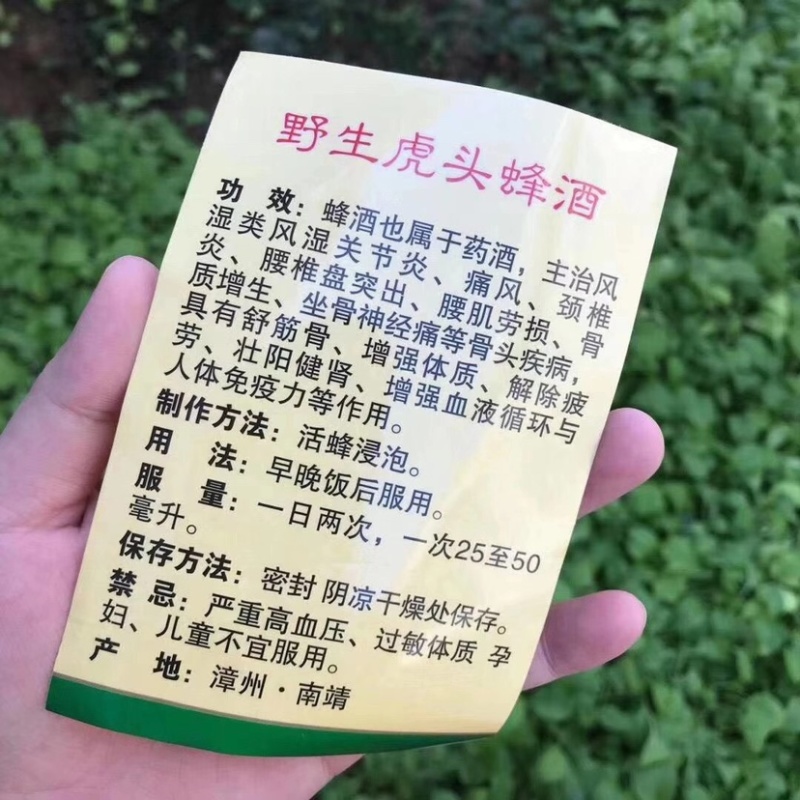 野生虎头蜂酒
功 效：蜂酒也属于药酒，主治风
湿类风湿关节炎、痛风、颈椎
炎、腰椎盘突出、腰肌劳损、骨
质增生、坐骨神经痛等骨头疾病，
具有舒筋骨、增强体质、解除疲
劳、壮阳健肾、增强血液循环与
人体免疫力等作用。
制作方法：活蜂浸泡。
用 法：早晚饭后服用。
服 量：一日两次，一次25至50
毫升。
保存方法：密封 阴凉干燥处保存。
禁 忌：严重高血压、过敏体质 孕
妇、儿童不宜服用。
产 地：漳州·南靖